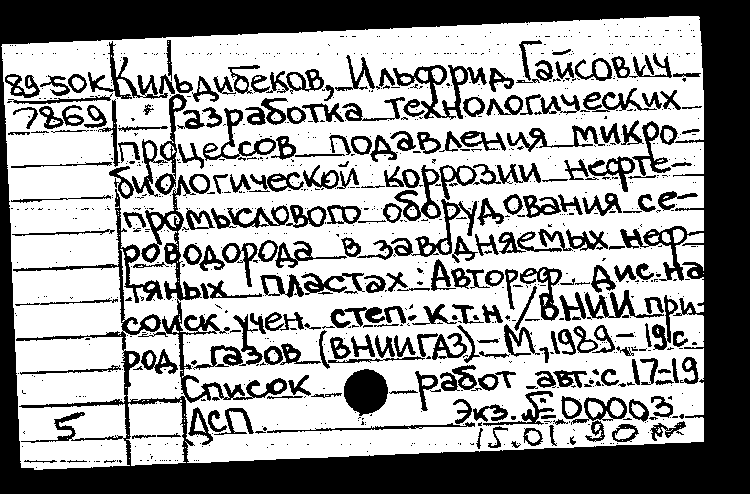 89-50К Кильдибеков, Ильфрид Гайсович.
7869 Разработка технологических
процессов подавления микро-
биологической коррозии нефте-
промыслового оборудования се-
роводорода в заводняемых неф-
тяных пластах: Автореф. дис. на
соиск. учен. степ. к.т.н. / ВНИИ при-
род. газов (ВНИИГАЗ).- М, 1989.- 19 с.
Список работ авт.: с 17-19.
5 ДСП. Экз. № 00003.
15.01.90